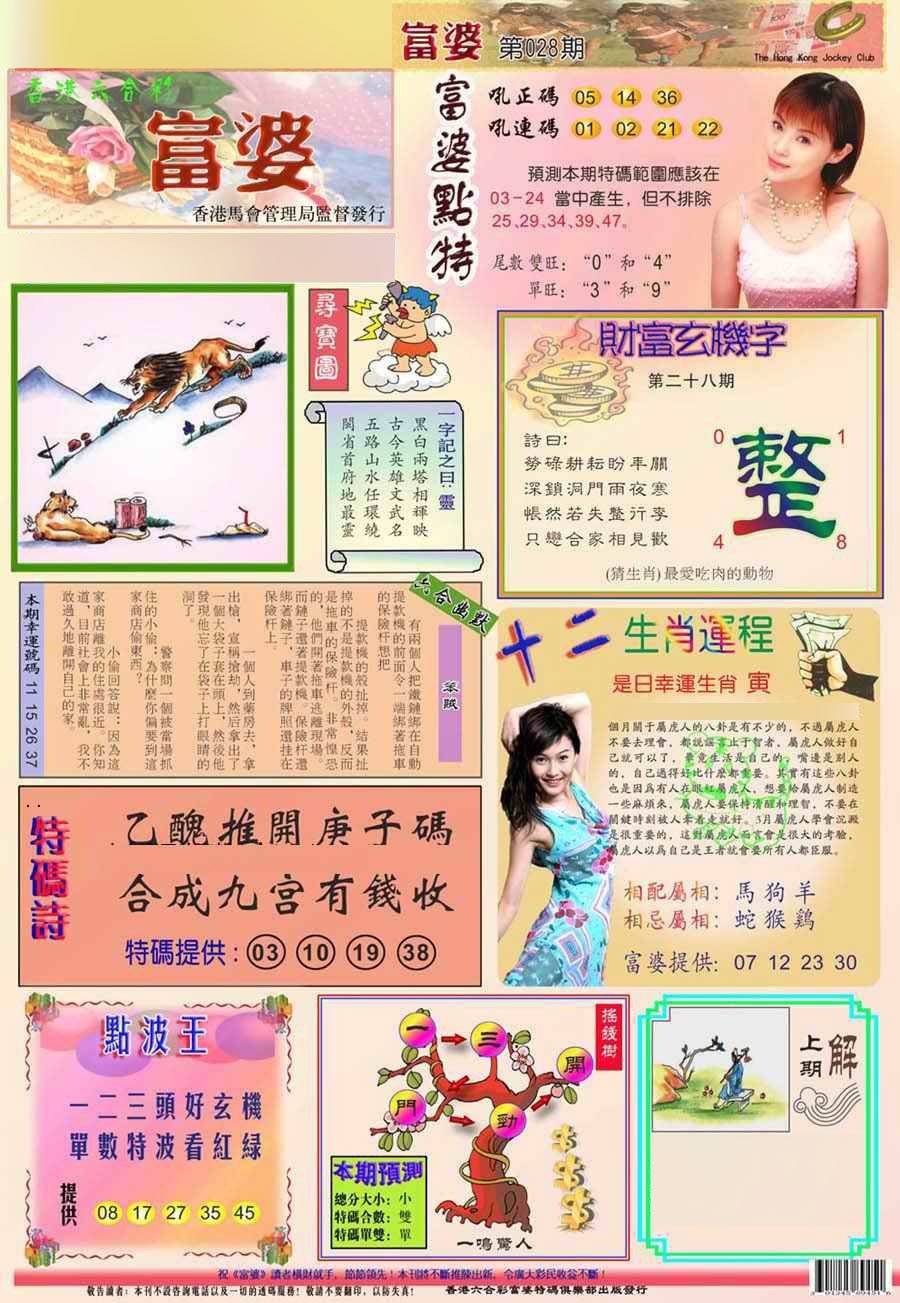 富婆 第028期
The Hong Kong Jockey Club
香港六合彩
富婆
香港馬會管理局監督發行
富婆點特
吼正碼 05 14 36
吼連碼 01 02 21 22
預測本期特碼範圍應該在
03-24 當中產生，但不排除
25、29、34、39、47。
尾數雙旺：“0”和“4”
單旺：“3”和“9”
尋寶圖
一字記之曰：靈
黑白兩塔相輝映
古今英雄文武名
五路山水任環繞
閩省首府地最靈
財富玄機字
第二十八期
詩曰：
勞碌耕耘盼年關
深鎖洞門雨夜寒
悵然若失整行李
只戀合家相見歡
0 1
整
4 8
(猜生肖)最愛吃肉的動物
六合幽默
笨賊
有兩個人把鐵鏈綁在自動
提款機的前面令一端綁著拖車
的保險杆想把
提款機的殼扯掉。結果扯
掉的不是提款機的外殼，反而
是拖車的保險杆。非常惶恐
的，他們開著拖車逃離現場。
而鏈子還著提款機。保險杆還
綁著鏈子，車子的牌照還挂在
保險杆上。
一個人到藥房去，拿
出槍，宣稱搶劫，然后拿出了
一個大袋子套在頭上，然後他
發現他忘了在袋子上打眼睛的
洞了。
警察問一個被當場抓
住的小偷：為什麽你偏要到這
家商店偷東西？
小偷回答說：因為這
家商店離我的住處很近。你知
道，目前社會上非常亂，我不
敢過久地離開自己的家。
本期幸運號碼 11 15 26 37
十二生肖運程
是日幸運生肖 寅
個月關于屬虎人的八卦是有不少的，不過屬虎人
不要去理會，都說謠言止于智者，屬虎人做好自
己就可以了，畢竟生活是自己的，嘴邊是別人
的，自己過得好比什麼都重要。其實有這些八卦
也是因爲有人在眼紅屬虎人，想要給屬虎人制造
一些麻煩來，屬虎人要保持清醒和理智，不要在
關鍵時刻被人牽着走就好。3月屬虎人學會沉澱
是很重要的，這對屬虎人而言會是很大的考驗，
屬虎人以爲自己是王者就會要所有人都臣服。
相配屬相：馬狗羊
相忌屬相：蛇猴鷄
富婆提供：07 12 23 30
特碼詩
乙醜推開庚子碼
合成九宮有錢收
特碼提供：03 10 19 38
點波王
一二三頭好玄機
單數特波看紅綠
提供 08 17 27 35 45
搖錢樹
一 三
開
門
勁
本期預測
總分大小：小
特碼合數：雙
特碼單雙：單
一鳴驚人
上期解
祝《富婆》讀者橫財就手，節節領先！本刊將不斷推陳出新，令廣大彩民收益不斷！
敬告讀者：本刊不設咨詢電話以及一切的透碼服務！敬請不要翻印，以防失真！ 香港六合彩富婆特碼俱樂部出版發行